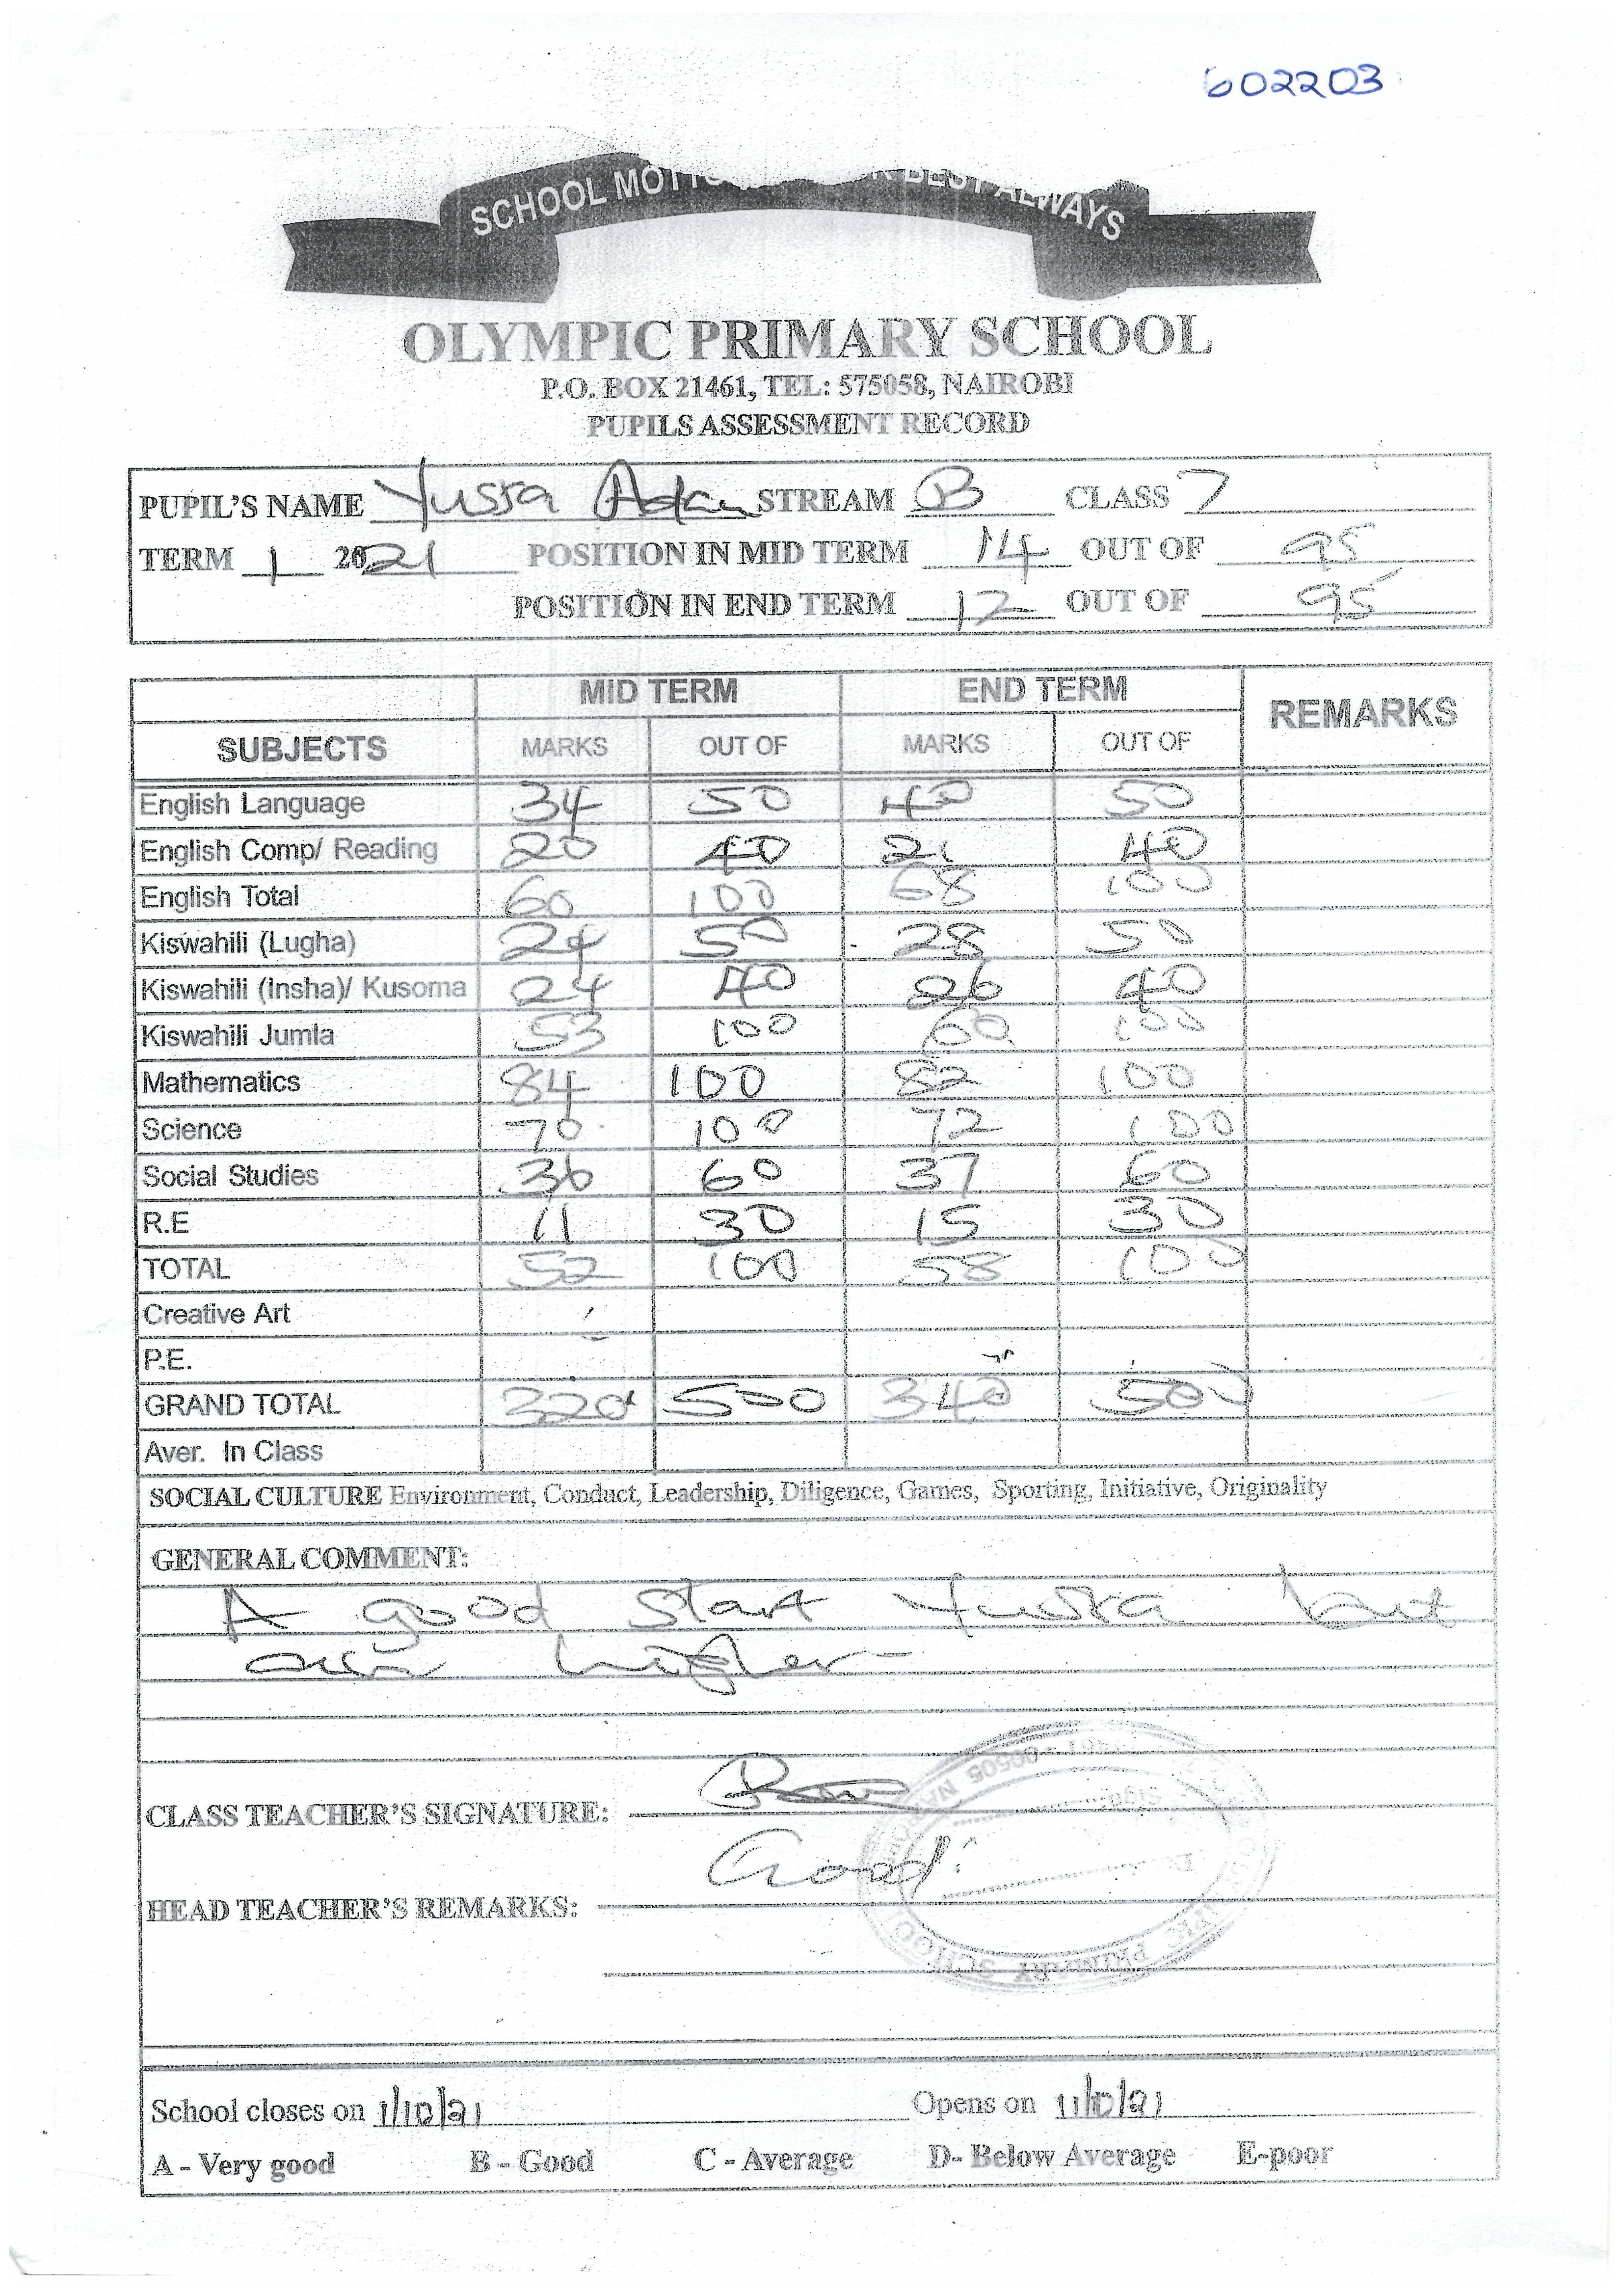 602203
SCHOOL MOTTO BEST ALWAYS
OLYMPIC PRIMARY SCHOOL
P.O. BOX 21461, TEL: 575058, NAIROBI
PUPILS ASSESSMENT RECORD
PUPIL'S NAME Yussra Adan STREAM B CLASS 7
TERM 1 2021 POSITION IN MID TERM 14 OUT OF 95
POSITION IN END TERM 12 OUT OF 95
MID TERM END TERM REMARKS
SUBJECTS MARKS OUT OF MARKS OUT OF
English Language 34 50 40 50
English Comp/ Reading 20 40 21 40
English Total 60 100 68 100
Kiswahili (Lugha) 24 50 28 50
Kiswahili (Insha)/ Kusoma 24 40 26 40
Kiswahili Jumla 53 100 60 100
Mathematics 84 100 82 100
Science 70 100 72 100
Social Studies 36 60 37 60
R.E 11 30 15 30
TOTAL 52 100 58 100
Creative Art
P.E.
GRAND TOTAL 320 500 340 500
Aver. In Class
SOCIAL CULTURE Environment, Conduct, Leadership, Diligence, Games, Sporting, Initiative, Originality
GENERAL COMMENT:
A good start Yussra but
aim higher
CLASS TEACHER'S SIGNATURE:
Good.
HEAD TEACHER'S REMARKS:
School closes on 1/10/21 Opens on 11/10/21
A - Very good B - Good C - Average D- Below Average E-poor